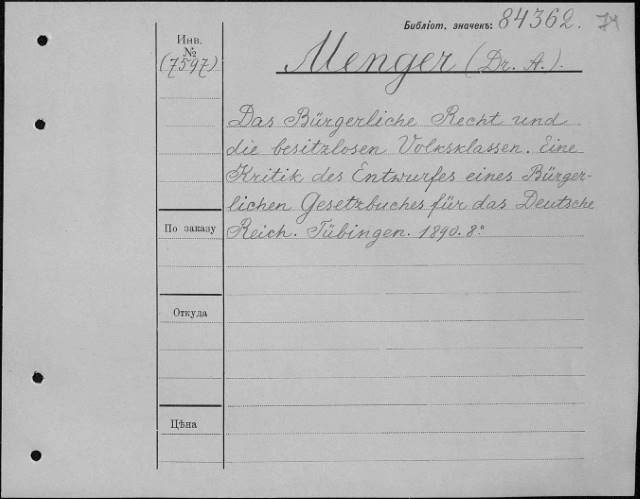 Библіот. значекъ: 84362. 74
Инв.
№
(7597)
Menger (Dr. A.).
Das Bürgerliche Recht und
die besitzlosen Volksklassen. Eine
Kritik des Entwurfes eines Bürger-
lichen Gesetzbuches für das Deutsche
Reich. Tübingen. 1890. 8º
По заказу
Откуда
Цѣна